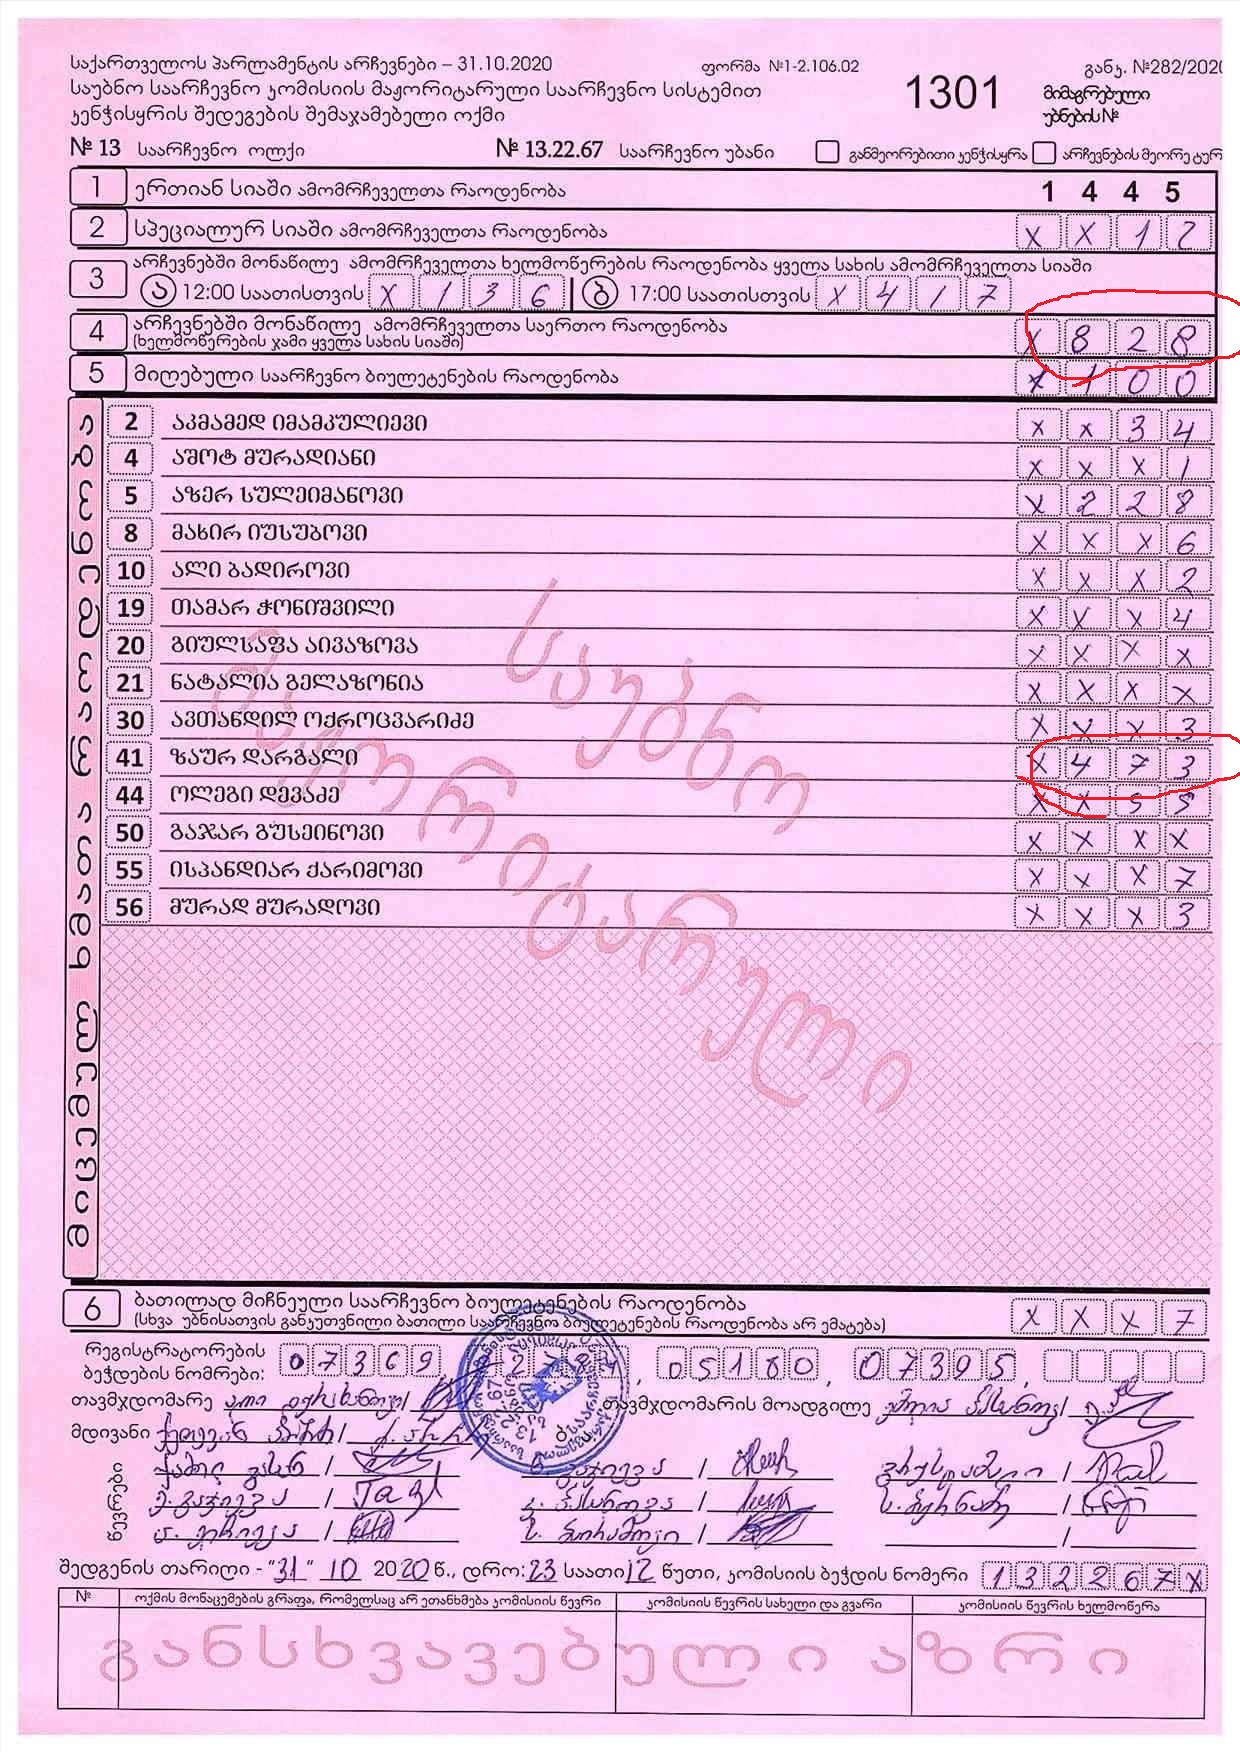 საქართველოს პარლამენტის არჩევნები – 31.10.2020 ფორმა №1-2.106.02 განკ. №282/2020
საუბნო საარჩევნო კომისიის მაჟორიტარული საარჩევნო სისტემით 1301 მიმაგრებული
კენჭისყრის შედეგების შემაჯამებელი ოქმი უბნების №
№ 13 საარჩევნო ოლქი № 13.22.67 საარჩევნო უბანი განმეორებითი კენჭისყრა არჩევნების მეორე ტურ
1 ერთიან სიაში ამომრჩეველთა რაოდენობა 1 4 4 5
2 სპეციალურ სიაში ამომრჩეველთა რაოდენობა X X 1 2
3 არჩევნებში მონაწილე ამომრჩეველთა ხელმოწერების რაოდენობა ყველა სახის ამომრჩეველთა სიაში
ა 12:00 საათისთვის X 1 3 6 ბ 17:00 საათისთვის X 4 1 7
4 არჩევნებში მონაწილე ამომრჩეველთა საერთო რაოდენობა X 8 2 8
(ხელმოწერების ჯამი ყველა სახის სიაში)
5 მიღებული საარჩევნო ბიულეტენების რაოდენობა 1 0 0
მიცემულ ხმათა რაოდენობა
2 აკმამედ იმამკულიევი X X 3 4
4 აშოტ მურადიანი X X X 1
5 აზერ სულეიმანოვი X 2 2 8
8 მახირ იუსუბოვი X X X 6
10 ალი ბადიროვი X X X 2
19 თამარ ჭონიშვილი X X X 4
20 გიულსაფა აივაზოვა X X X X
21 ნატალია გელაზონია X X X X
30 ავთანდილ ოქროცვარიძე X X X 3
41 ზაურ დარგალი X 4 7 3
44 ოლეგი დევაძე X X 5 5
50 გაჯარ გუსეინოვი X X X X
55 ისპანდიარ ქარიმოვი X X X 7
56 მურად მურადოვი X X X 3
საუბნო
მაჟორიტარული
6 ბათილად მიჩნეული საარჩევნო ბიულეტენების რაოდენობა X X X 7
(სხვა უბნისათვის განკუთვნილი ბათილი საარჩევნო ბიულეტენების რაოდენობა არ ემატება)
რეგისტრატორების
ბეჭდების ნომრები: 07369, 05180, 07395,
თავმჯდომარე თავმჯდომარის მოადგილე
მდივანი
წევრები
შედგენის თარიღი - "31" 10 2020 წ., დრო: 23 საათი 12 წუთი, კომისიის ბეჭდის ნომერი 1 3 2 2 6 7 X
№ ოქმის მონაცემების გრაფა, რომელსაც არ ეთანხმება კომისიის წევრი კომისიის წევრის სახელი და გვარი კომისიის წევრის ხელმოწერა
განსხვავებული აზრი